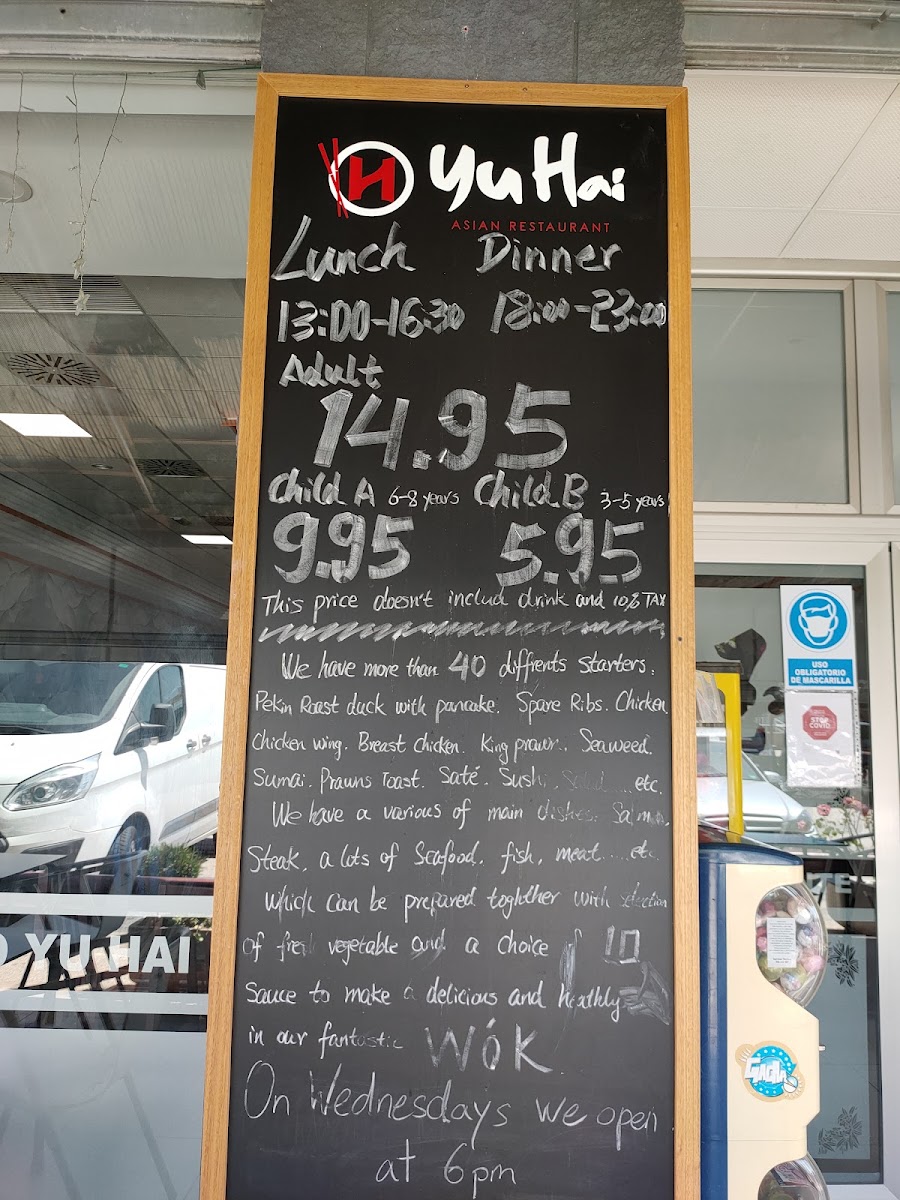 Yu Hai
ASIAN RESTAURANT
Lunch Dinner
13:00-16:30 18:00-23:00
Adult
14.95
Child A 6-8 years Child B 3-5 years
9.95 5.95
This price doesn't includ drink and 10% TAX
We have more than 40 diffrents starters.
Pekin Roast duck with pancake. Spare Ribs. Chicken
Chicken wing. Breast chicken. King prawn. Seaweed.
Sumai. Prawns Toast. Saté. Sushi. Salad.... etc.
We have a various of main dishes. Salmon,
Steak, a lots of Seafood. fish, meat....etc
which can be prepared toghther with selection
of fresh vegetable and a choice of 10
Sauce to make a delicious and
in our fantastic WÓK
On Wednesdays we open
at 6pm
O YU HAI
USO
OBLIGATORIO
DE MASCARILLA
STOP
COVID
GACHA